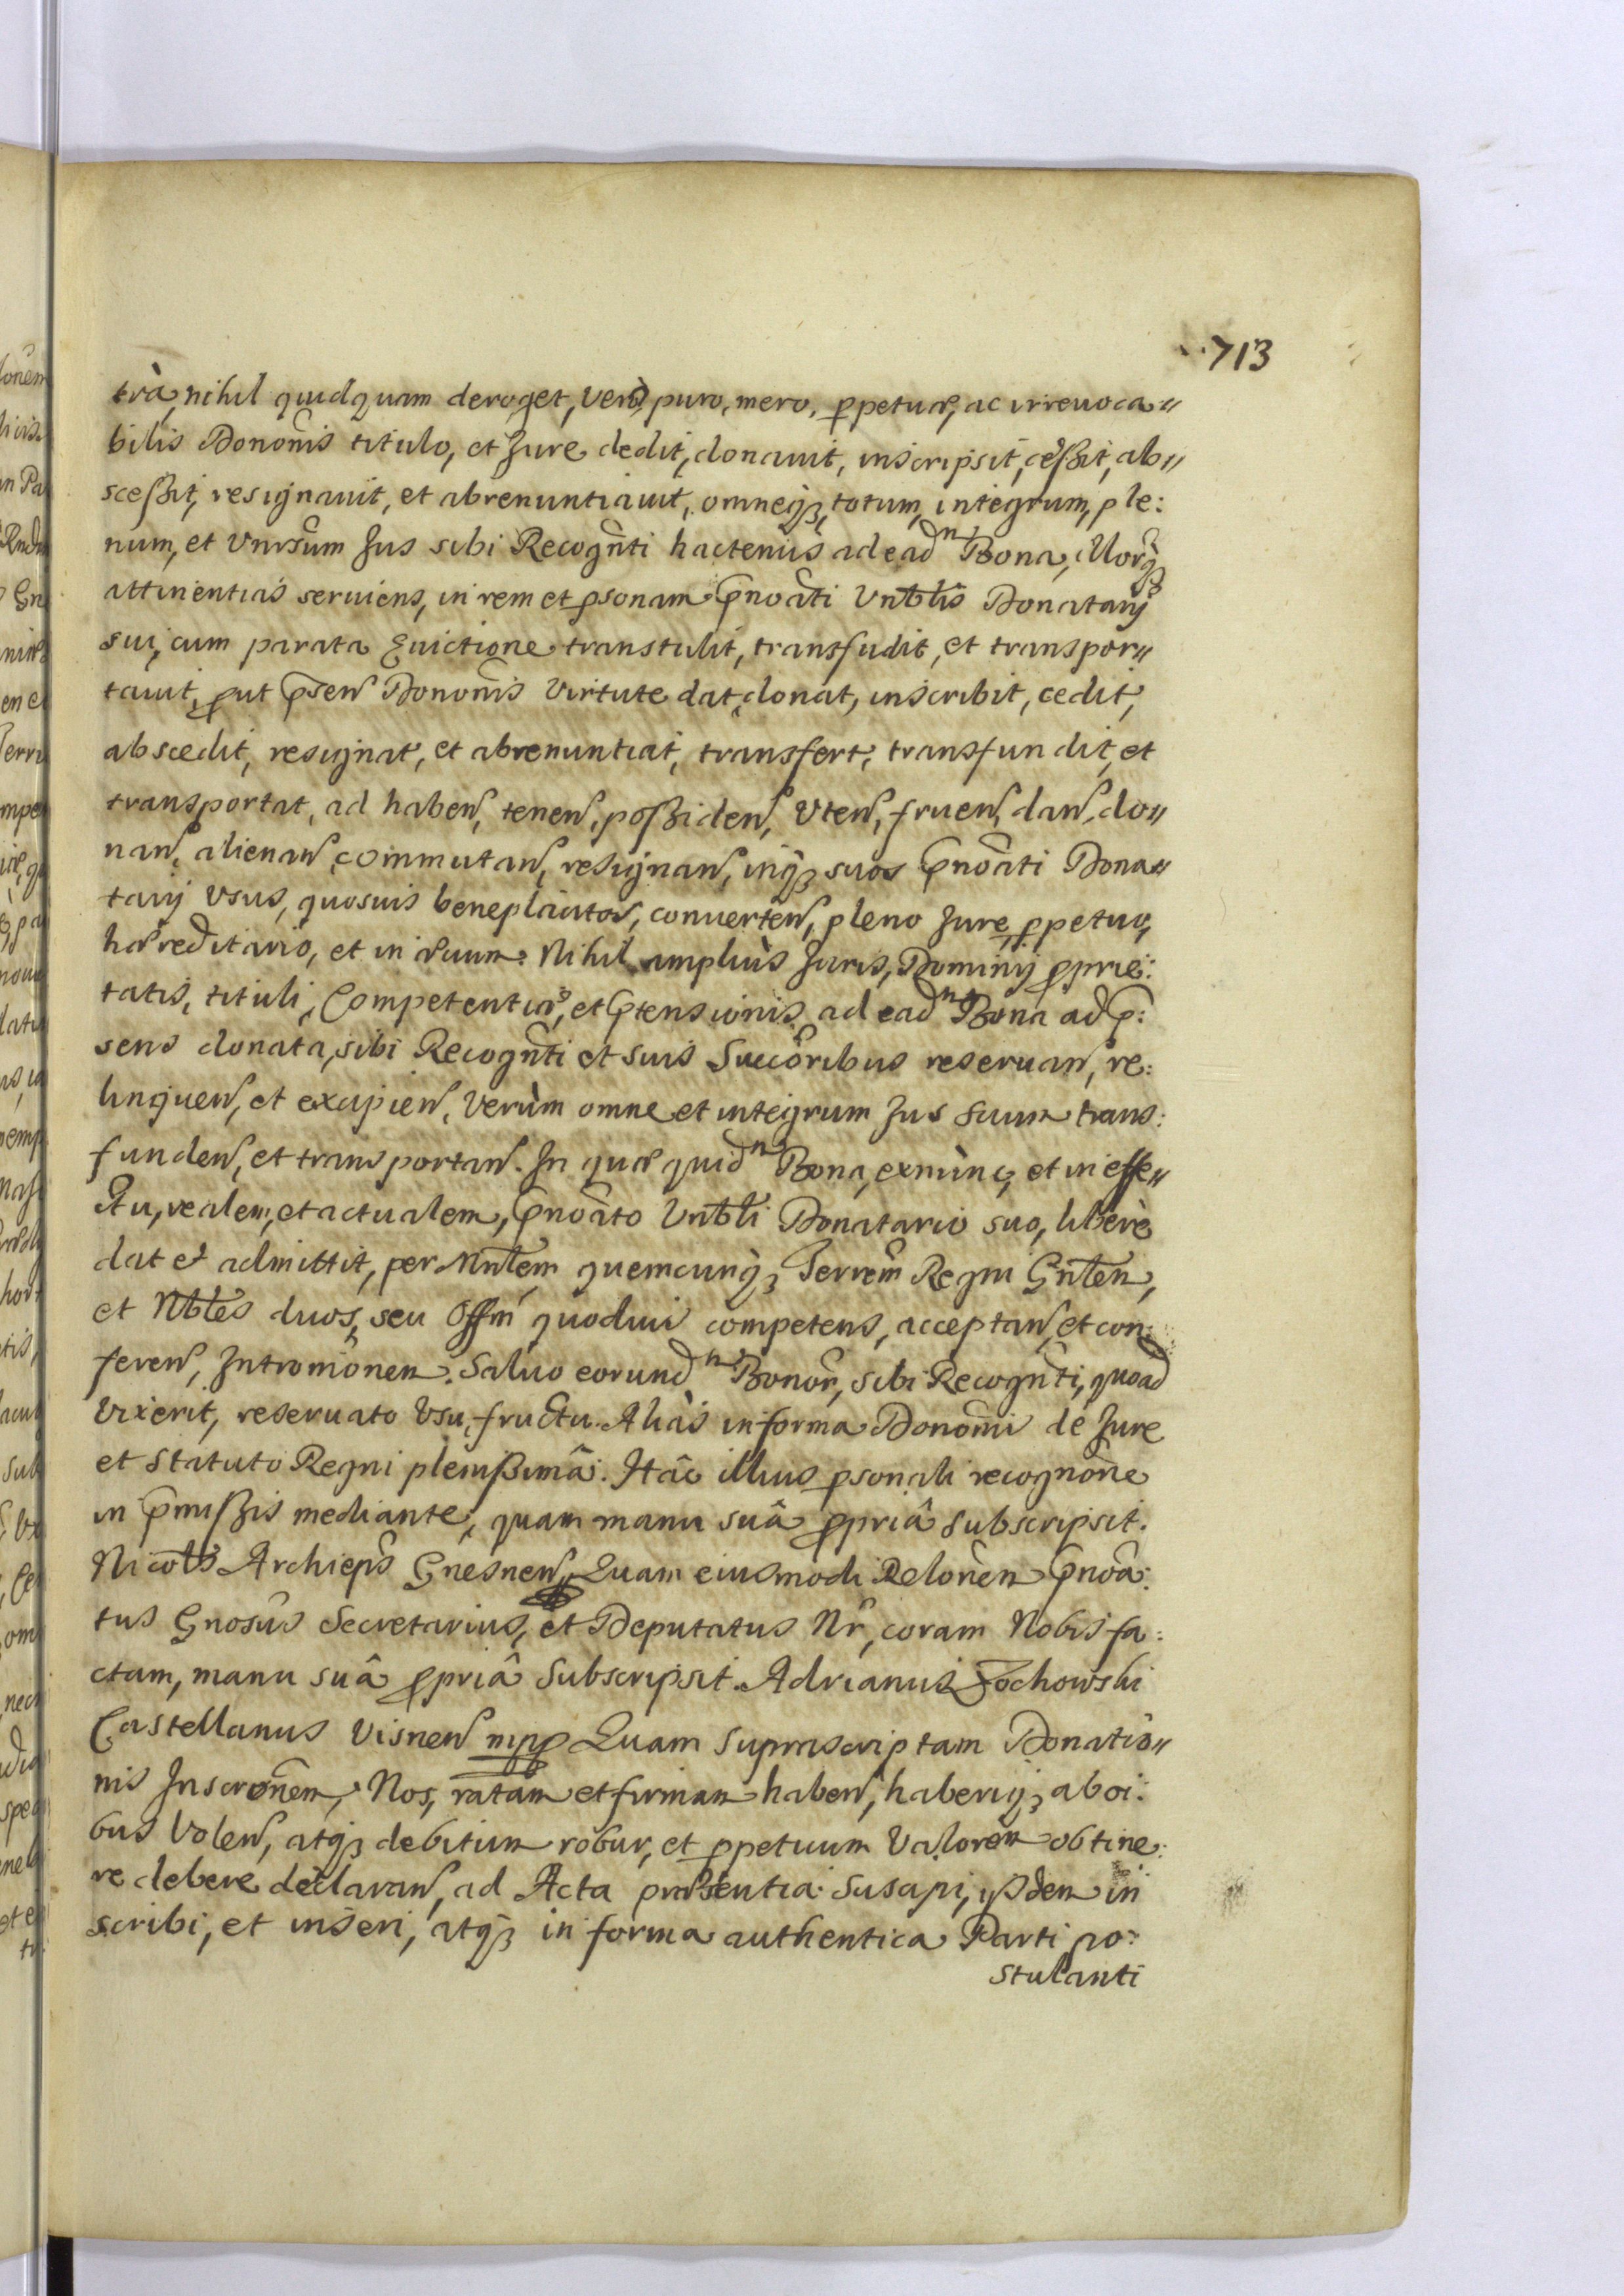 713
trà, nihil quidquam deroget, verò puro, mero, ꝑpetuæ, ac irreuoca〃
bilis Donõnis titulo, et Jure dedit, donauit, inscripsit, ceßit, ab〃
sceßit, resignauit, et abrenuntiauit, omneqꝫ, totum, integrum, ple:
num, et Vnirsũm Jus sibi Recogñti hactenus ad eadᵐ Bona, illorqꝫ
attinentias seruiens, in rem et ꝑsonam p̃noãti Vnbl̃is Donatarij
sui, cum parata Euictione transtulit, transfudit, et transpor〃
tauit, ꝓut p̃sen̄ Donõnis Virtute dat, donat, inscribit, cedit,
abscedit, resignat, et abrenuntiat, transfert, transfundit, et
transportat, ad haben̄, tenen̄, poßiden̄, Vten̄, fruen̄, dan̄, do〃
nan̄, alienan̄, commutan̄, resignan̄, inqꝫ suos p̃noãti Dona〃
tarij Vsus, quosuis beneplacitos, conuerten̄, pleno Jure, ꝑpetuo,
hæreditario, et in æuum. Nihil amplius Juris, Dominij ꝓprie:
tatis, tituli, Competentiæ, et p̃tensionis ad eadᵐ Bona ad p̃:
sens donata, sibi Recogñti et suis Succõribus reseruan̄, re:
linquen̄, et excipien̄, Verùm omne et integrum Jus suum trans:
funden̄, et transportan̄. In quæ quidᵐ Bona, exnùnc, et in effe〃
ctu, realem, et actualem, p̃noãto Vnbl̃i Donatario suo, liberè
dat et admittit, per Mñtem quemcunqꝫ Terrẽm Regni Gñlen,
et Nbl̃es duos, seu Offm̃ quoduis competens, acceptan̄, et con:
feren̄, Intromõnem. Saluo eorundᵐ Bonor̃, sibi Recogñti, quoad
Vixerit, reseruato Vsu, fructu. Aliàs in forma Donõni de Jure
et Statuto Regni plenißimâ. Hâc illius ꝑsonali recognõne
in p̃mißis mediante, quam manu suâ ꝓpriâ subscripsit.
Nicol̃s Archiep̃s Gnesnen̄, Quam eiusmodi Relõnem p̃noã:
tus Gnosũs Secretarius, et Deputatus Nr̃, coram Nobis fa:
ctam, manu suâ ꝓpriâ Subscripsit. Adrianus Żochowski
Castellanus Visnen̄ mpp Quam supra scriptam Donatio〃
nis Inscrõnem, Nos, ratam et firmam haben̄, haberiqꝫ ab oi:
bus Volen̄, atqꝫ debitum robur, et ꝑpetuum Valorem obtine:
re debere declaran̄, ad Acta præsentia Suscipi, ijsdem in
scribi, et inseri, atqꝫ in forma authentica Parti po:
stulanti